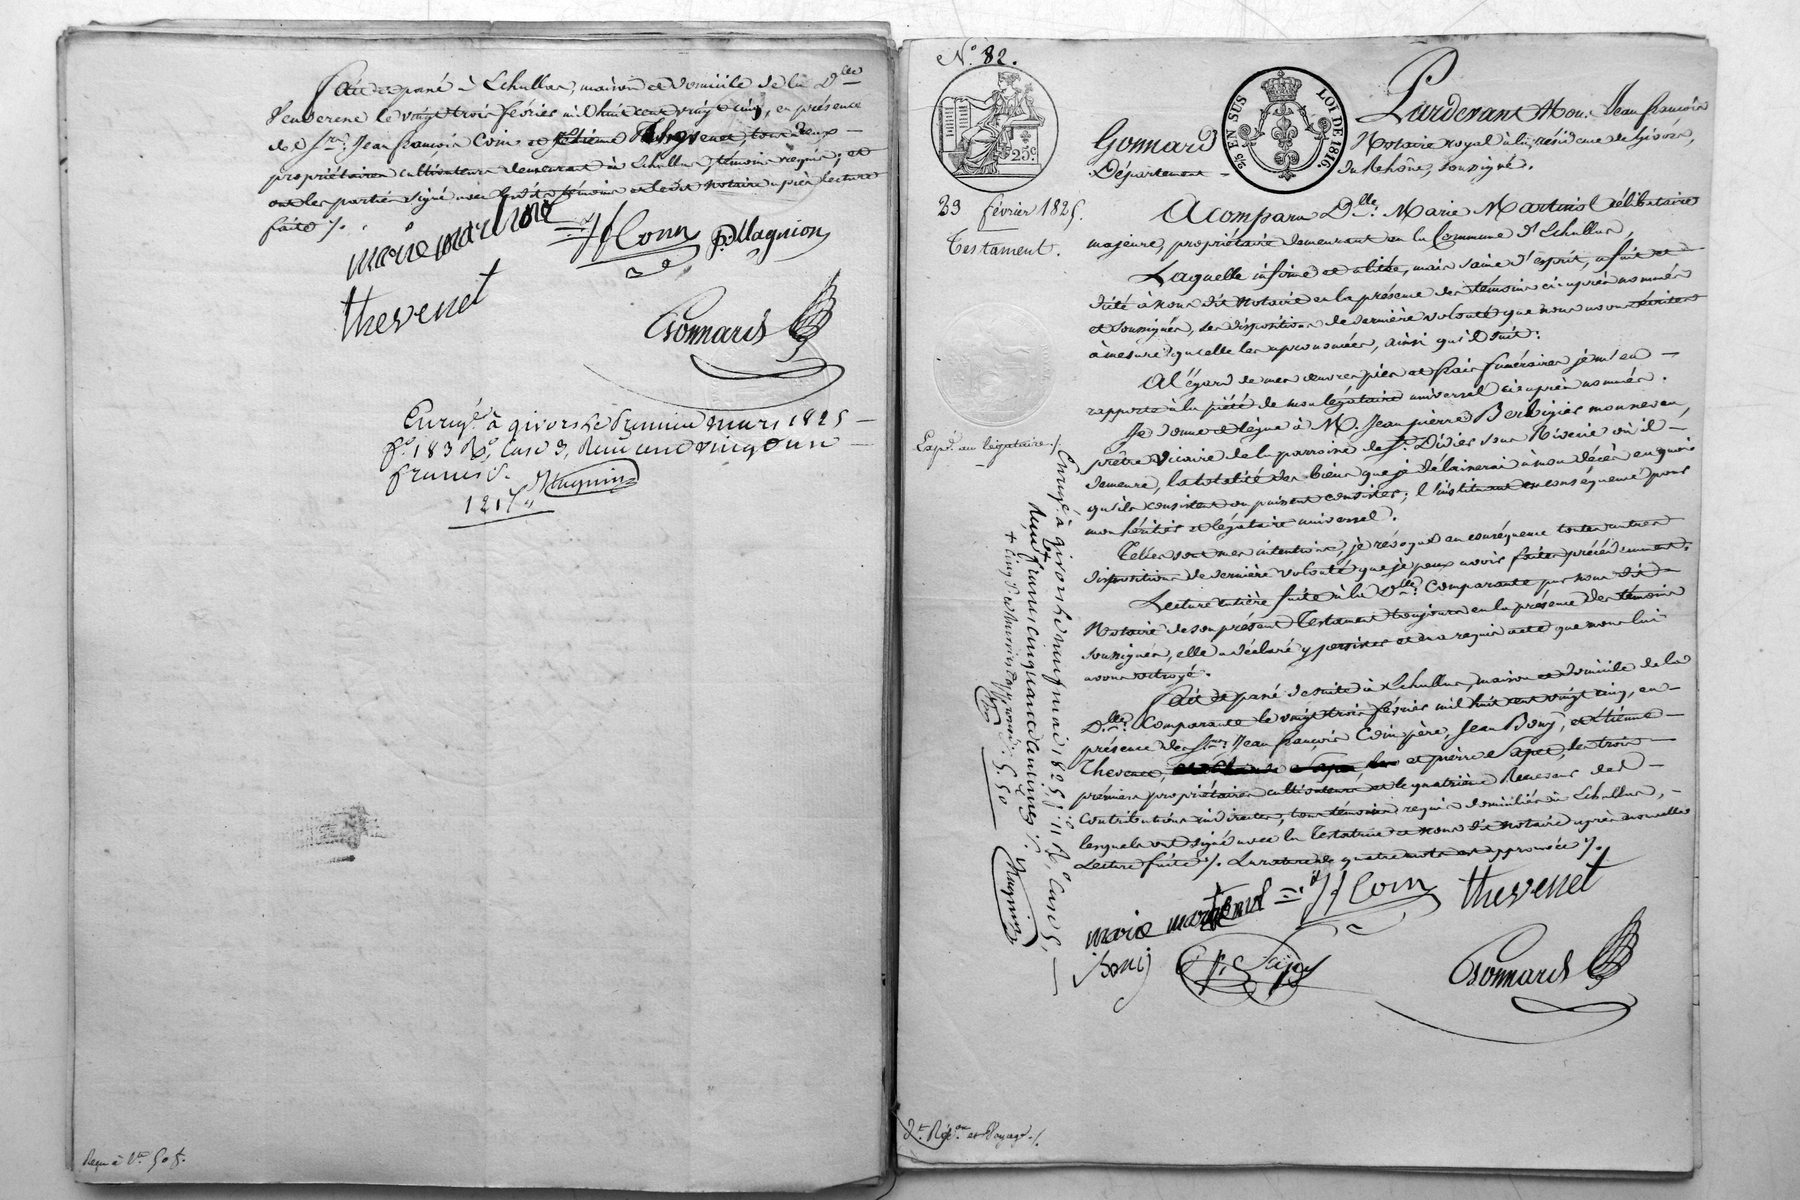 Fait et passé à Echallas, maison et domicile de la D.lle
Venderene le vingt trois février mil huit cent vingt cinq, en présence
de S.rs Jean françois Coin et Etienne Thevenet, tous deux
propriétaires cultivateurs demeurant à Echallas, témoins requis, et
ont les parties signé avec les dits témoins et le dit notaire après lecture
faite ./.
marie martinot
JfCoin
P. Magnion
thevenet
Gonnard
Enreg.é à givors le premier mars 1825
f.o 183 R.o, Case 3, Reçu cent vingt un
francs.
121 f
Magnin
Reçu à
N.o 82.
25c
25 EN SUS
LOI DE 1816.
Pardevant Mon. Jean francois
Gonnard Notaire royal à la résidence de Givors,
Département du Rhône, soussigné.
23 février 1825.
Testament.
A comparu D.lle Marie Martinot célibataire
majeure, propriétaire demeurant en la Commune d'Echallas,
Laquelle infirme et alitée, mais saine d'esprit, a fait et
dicté à nous dit Notaire en la présence des témoins ci après nommés
et soussignés, ses dispositions de dernière volonté que nous avons écrites
à mesure qu'elle les a prononcées, ainsi qu'il suit:
A l'égard de mes œuvres pies et frais funéraires je m'en
rapporte à la piété de mon légataire universel ci après nommé.
Je donne et lègue à M. Jean pierre mon neveu,
prêtre vicaire de la paroisse de S.t Didier sous Riverie où il
demeure, la totalité des biens que je délaisserai à mon décès en quoi
qu'ils consistent ou puissent consister; l'instituant en conséquence pour
mon héritier et légataire universel.
Exp.é au légataire ./.
Telles sont mes intentions, je révoque en conséquence toutes autres
dispositions de dernière volonté que je peux avoir faites précédemment.
Lecture entière faite à la D.lle Comparante par nous dit
Notaire de son présent Testament toujours en la présence des témoins
soussignés, elle a déclaré y persister et en a requis acte que nous lui
avons octroyé.
Fait et passé de suite à Echallas, maison et domicile de la
D.lle Comparante le vingt trois février mil huit cent vingt cinq, en
présence de S.rs Jean françois Coin père, Jean Bony, et Etienne
Thevenet, et pierre Sapet, les trois
premiers propriétaires cultivateurs et le quatrième Receveur des
Contributions indirectes, tous témoins requis domiciliés à Echallas,
lesquels ont signé avec la Testatrice et nous dit notaire après nouvelle
Lecture faite ./. La rature de quatre mots est approuvée ./.
marie martinot
JfCoin
thevenet
Bonij
Gonnard
Enreg.é à givors le neuf mai 1825, f.o 11 R.o Case 5,
Reçu + francs cinquante centimes ./. Magnin
+ cinq
approuvé. 5. 50